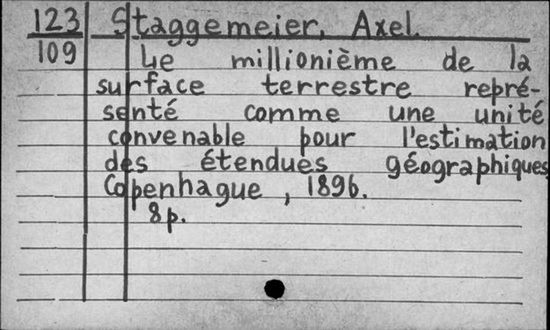 123 Staggemeier, Axel.
109 Le millionième de la
surface terrestre repré-
senté comme une unité
convenable pour l'estimation
des étendues géographiques
Copenhague, 1896.
8p.